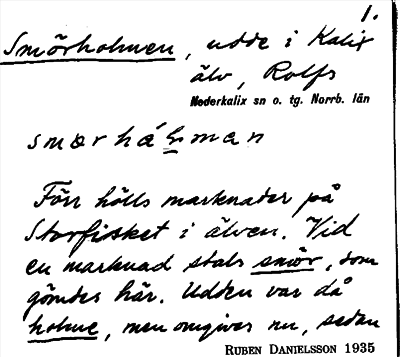 1.
Smörholmen, udde i Kalix
älv, Rolfs
Nederkalix sn o. tg. Norrb. län
smœrhȧman
Förr hölls marknader på
Storfisket i älven. Vid
en marknad stals smör, som
gömdes här. Udden var då
holme, men omgives nu, sedan
RUBEN DANIELSSON 1935